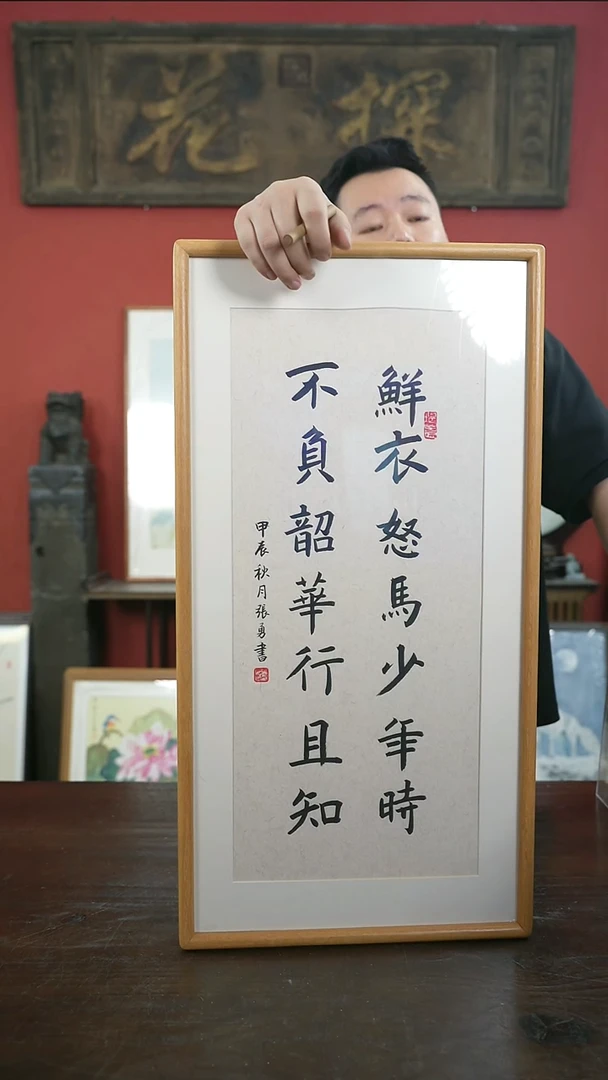 探花
鮮衣怒馬少年時
不負韶華行且知
甲辰秋月張勇書